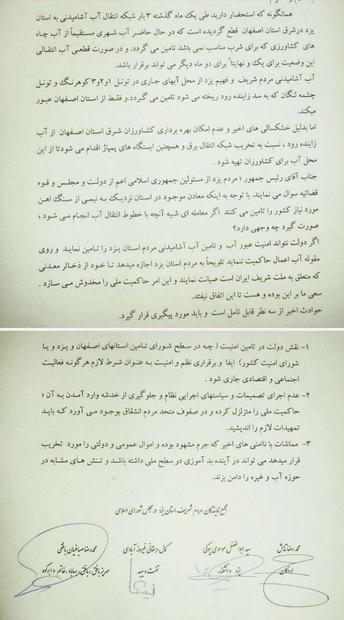 همانگونه که استحضار دارید طی یک ماه گذشته ۳ بار شبکه انتقال آب آشامیدنی به استان
یزد درشرق استان اصفهان قطع گردیده است که در حال حاضر آب شهری مستقیماً از آب چاه
های کشاورزی که برای شرب مناسب نمی باشد تامین می گردد. و در صورت قطعی آب انتقالی
این وضعیت برای یک و نهایتاً برای دو ماه دیگر می تواند برقرار باشد.
آب آشامیدنی مردم شریف و فهیم یزد از محل آبهای جاری در تونل ۱و۲و۳ کوهرنگ و تونل
چشمه لنگان که به سد زاینده رود ریخته می شود تامین می گردد.و فقط از استان اصفهان عبور
میکند.
اما بدلیل خشکسالی های اخیر و عدم امکان بهره برداری کشاورزان شرق استان اصفهان از آب
زاینده رود ، نسبت به تخریب شبکه انتقال برق و همچنین ایستگاه های پمپاژ اقدام می شودتا از این
محل آب برای کشاورزان تهیه شود .
جناب آقای رئیس جمهور ؛ مردم یزد از مسئولین جمهوری اسلامی اعم از دولت و مجلس و قوه
قضائیه سوال می نمایند. با توجه به اینکه معادن موجود در استان نزدیک به نیمی از سنگ آهن
مورد نیاز کشور را تامین می کنند اگر معامله ای شبیه آنچه با خطوط انتقال آب انجام می شود ،
صورت گیرد چه وجهی دارد؟
اگر دولت نتواند امنیت عبور آب و تامین آب آشامیدنی مردم استان یزد را تامین نماید و روی
مقوله آب اعمال حاکمیت ننماید تلویحاً به مردم استان یزد اجازه میدهد تا خود از ذخائر معدنی
که متعلق به ملت شریف ایران است صیانت نمایند و این امر حاکمیت ملی را مخدوش می سازد .
سعی ما بر این بوده و هست تا این اتفاق نیفتد.
حوادث اخیر از سه نظر قابل تامل است و باید مورد پیگیری قرار گیرد.
۱- نقش دولت در تامین امنیت ( چه در سطح شورای تامین استانهای اصفهان و یزد و یا
شورای امنیت کشور) ایفا و برقراری نظم و امنیت به عنوان شرط لازم هرگونه فعالیت
اجتماعی و اقتصادی جاری شود .
۲- عدم اجرای تصمیمات و سیاستهای اجرایی نظام و جلوگیری از خدشه وارد آمدن به آن ؛
حاکمیت ملی را متزلزل کرده و در صفوف متحد مردم انشقاق بوجود می آورد که باید
تمهیدات لازم را اندیشید.
۳- مماشات با ناامنی های اخیر که جرم مشهود بوده و اموال عمومی و دولتی را مورد تخریب
قرار میدهد می تواند در آینده بد آموزی در سطح ملی داشته باشد و تنش های مشابه در
حوزه آب و غیره را دامن بزند.
مجمع نمایندگان مردم شریف استان یزد در مجلس شورای اسلامی
محمدرضا تابش سید ابوالفضل موسوی بیوکی کمال دهقانی فیروزآبادی محمدرضا صباغیان بافقی
اردکان یزد و اشکذر تفت و میبد